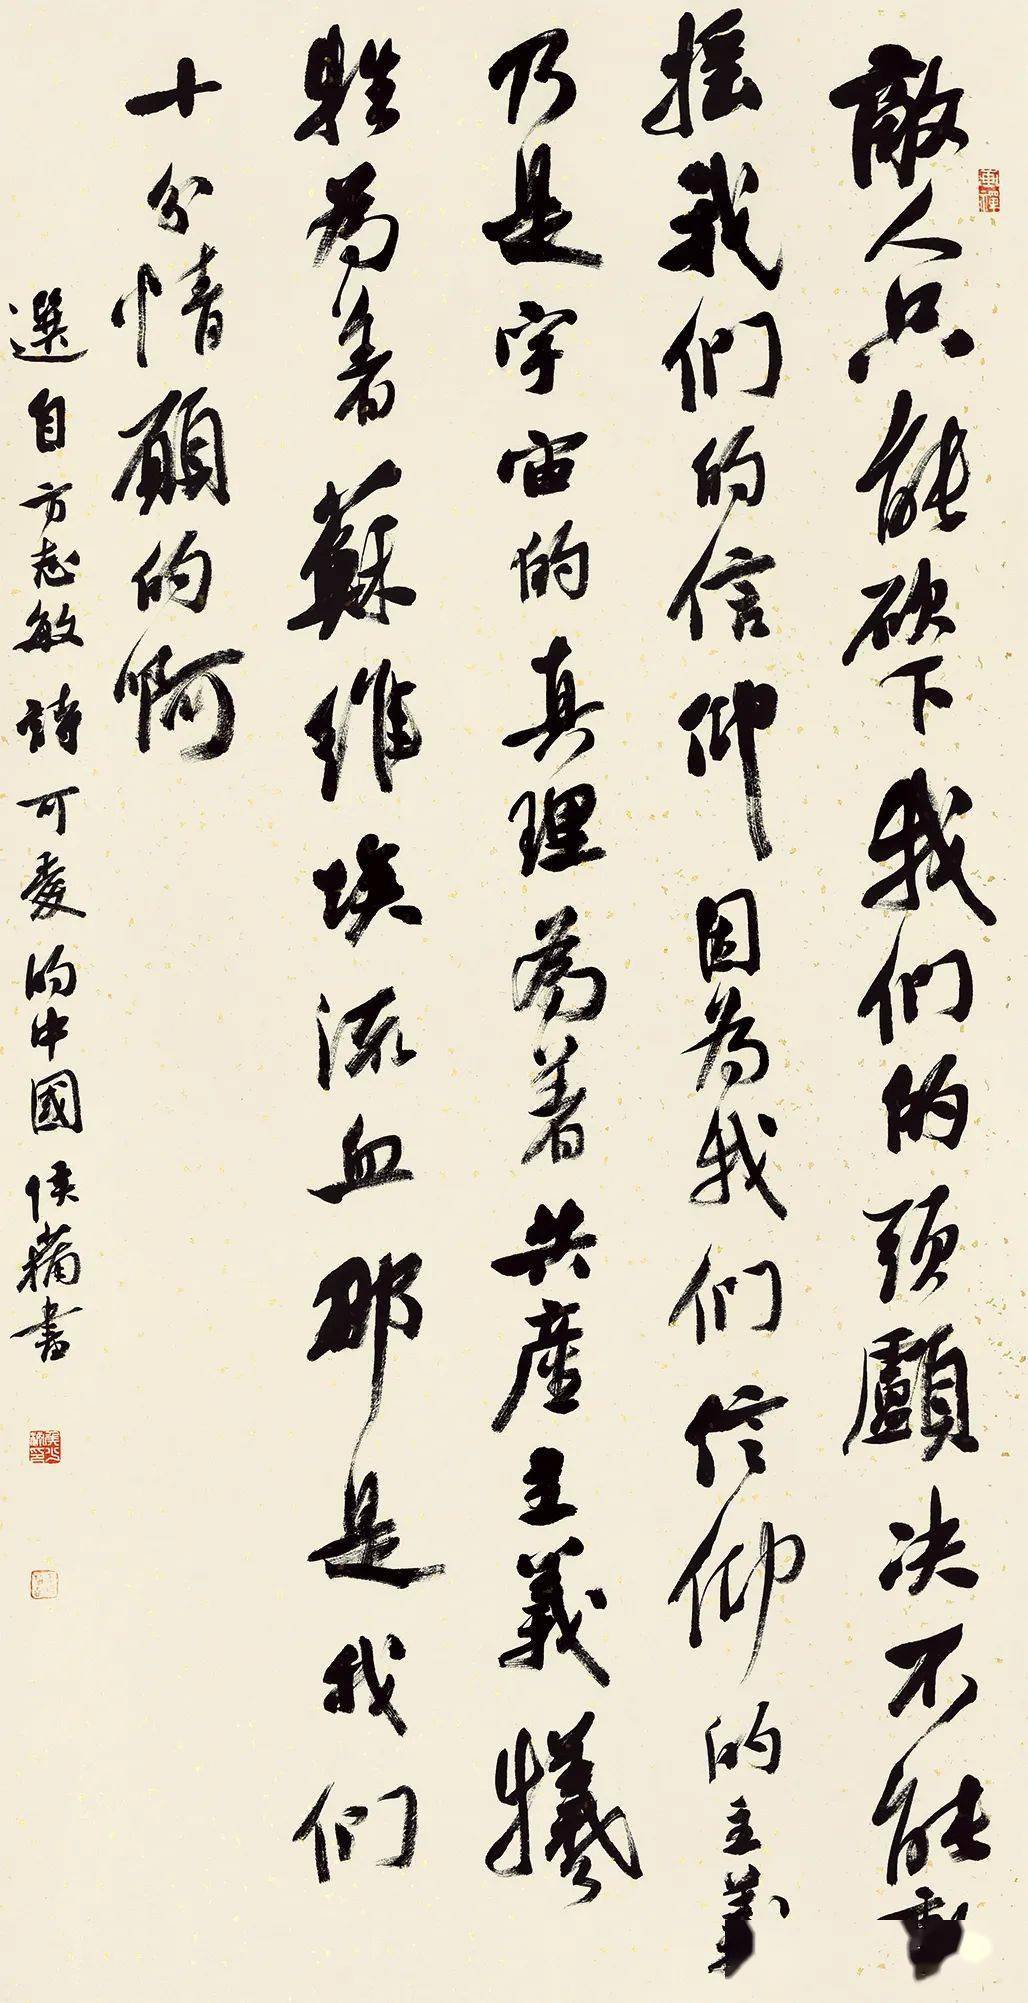 敵人只能砍下我們的頭顱决不能動
摇我們的信仰因為我們信仰的主義
乃是宇宙的真理為着共產主義犧
牲為着蘇維埃流血那是我們
十分情願的啊
選自方志敏詩可愛的中國 侯書